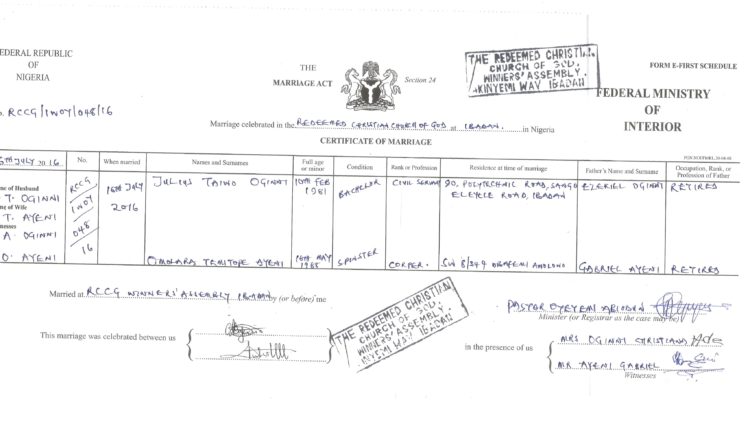 FEDERAL REPUBLIC
OF
NIGERIA
THE
MARRIAGE ACT
Section 24
THE REDEEMED CHRISTIAN
CHURCH OF GOD.
WINNERS' ASSEMBLY.
AKINYEMI WAY IBADAN
FORM E-FIRST SCHEDULE
FEDERAL MINISTRY
OF
INTERIOR
RCCG/INOY/048/16
Marriage celebrated in the REDEEMED CHRISTIAN CHURCH OF GOD at IBADAN in Nigeria
CERTIFICATE OF MARRIAGE
JULY 2016
No.
When married
Names and Surnames
Full age or minor
Condition
Rank or Profession
Residence at time of marriage
Father's Name and Surname
Occupation, Rank, or Profession of Father
Name of Husband
T. OGINNI
Name of Wife
T. AYENI
Witnesses
A. OGINNI
O. AYENI
RCCG
INOY
048
16
16TH JULY
2016
JULIUS TAIWO OGINNI
10TH FEB
1981
BACHELOR
CIVIL SERVANT
20, POLYTECHNIC ROAD, SANGO
ELEYELE ROAD, IBADAN
EZEKIEL OGINNI
RETIRED
OMOLARA TEMITOPE AYENI
MAY
1985
SPINSTER
CORPER.
OBAFEMI AWOLOWO
GABRIEL AYENI
RETIRED
Married at RCCG WINNERS' ASSEMBLY IBADAN by (or before) me
PASTOR OYEYEMI ABIODUN
Minister (or Registrar as the case may be)
This marriage was celebrated between us
THE REDEEMED CHRISTIAN
CHURCH OF GOD.
WINNERS' ASSEMBLY.
AKINYEMI WAY IBADAN
in the presence of us
MRS OGINNI CHRISTIANA
MR AYENI GABRIEL
Witnesses